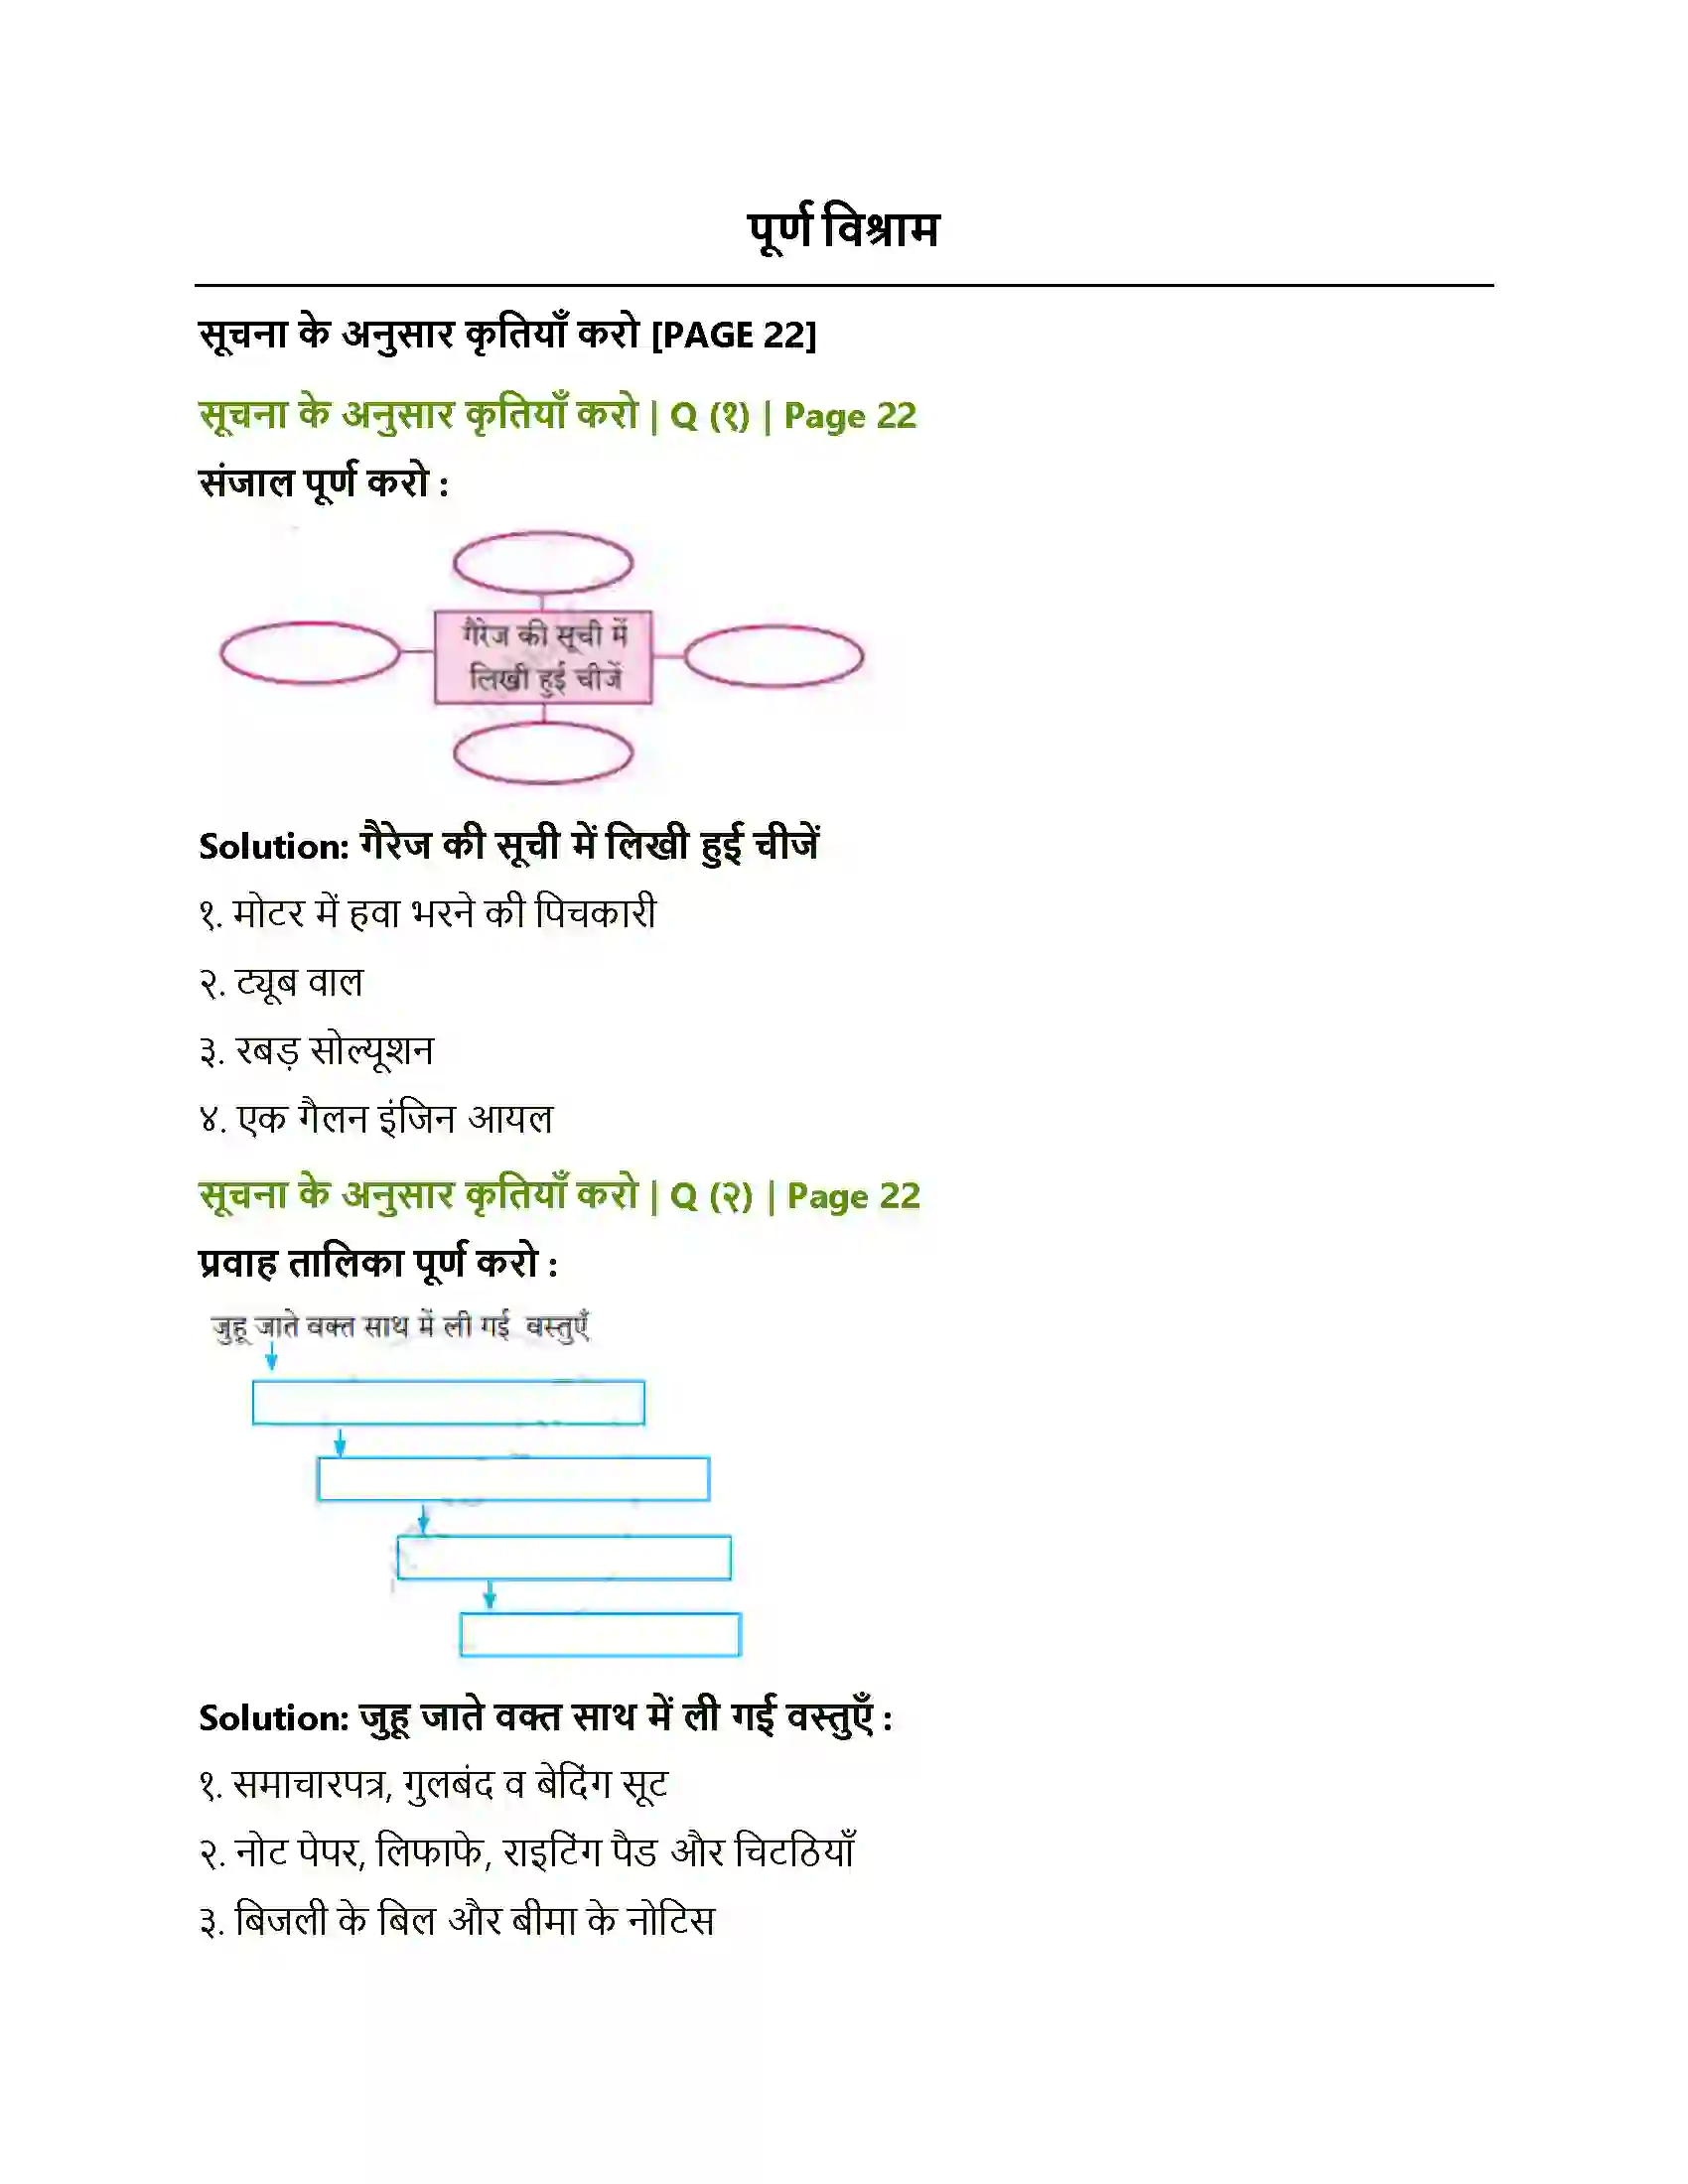 पूर्ण विश्राम
सूचना के अनुसार कृतियाँ करो [PAGE 22]
सूचना के अनुसार कृतियाँ करो | Q (१) | Page 22
संजाल पूर्ण करो :
गैरेज की सूची में
लिखी हुई चीजें
Solution: गैरेज की सूची में लिखी हुई चीजें
१. मोटर में हवा भरने की पिचकारी
२. ट्यूब वाल
३. रबड़ सोल्यूशन
४. एक गैलन इंजिन आयल
सूचना के अनुसार कृतियाँ करो | Q (२) | Page 22
प्रवाह तालिका पूर्ण करो :
जुहू जाते वक्त साथ में ली गई वस्तुएँ
Solution: जुहू जाते वक्त साथ में ली गई वस्तुएँ :
१. समाचारपत्र, गुलबंद व बेदिंग सूट
२. नोट पेपर, लिफाफे, राइटिंग पैड और चिटठियाँ
३. बिजली के बिल और बीमा के नोटिस